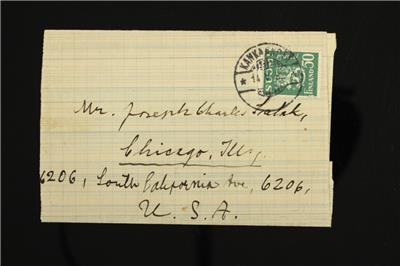 KANKAANPÄÄ
50
FINLAND
14
Mr. Joseph Charles
Chicago, Ills,
6206, South California Ave, 6206,
U. S. A.